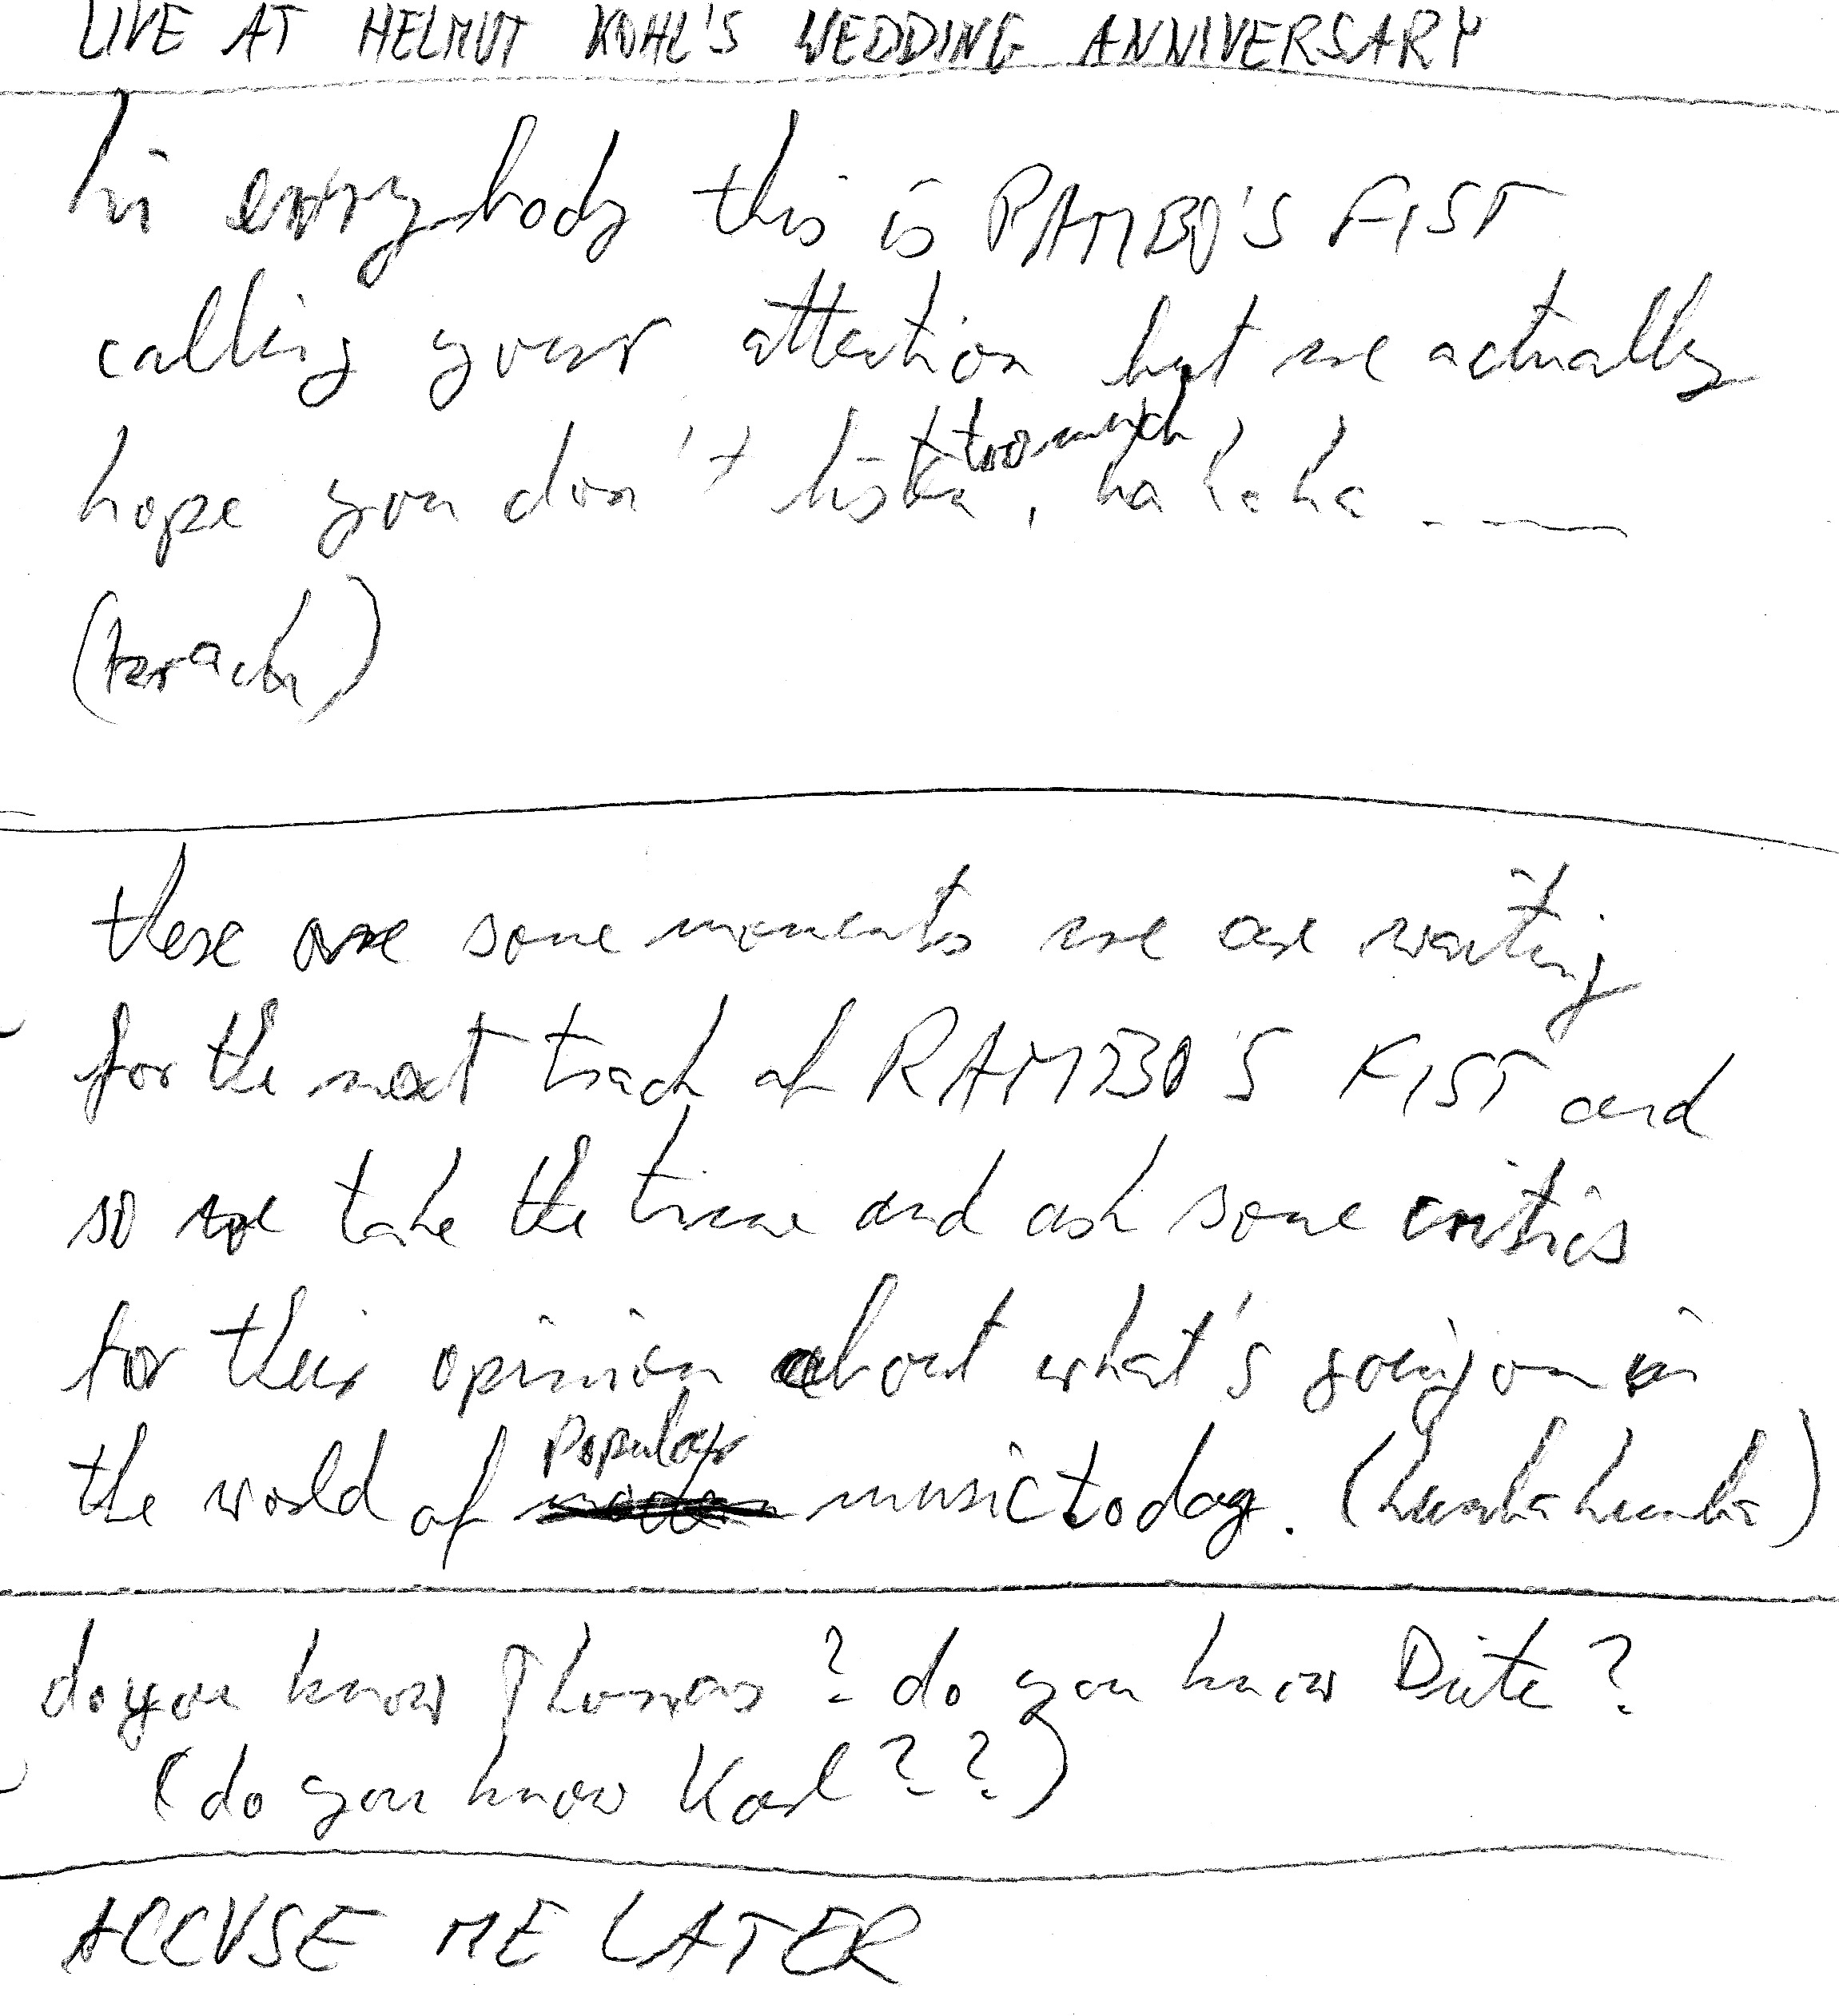 LIVE AT HELMUT KOHL'S WEDDING ANNIVERSARY
hi everybody this is RAMBO'S FIST
calling your attention but we actually
hope you don't listen too much, ha ha ha ....
there are some moments we are waiting
for the next track of RAMBO'S FIST and
so we take the time and ask some critics
for their opinion about what's going on in
the world of popular music today. (humba humba)
do you know Thomas? do you know Dieter?
(do you know Karl??)
ACCUSE ME LATER